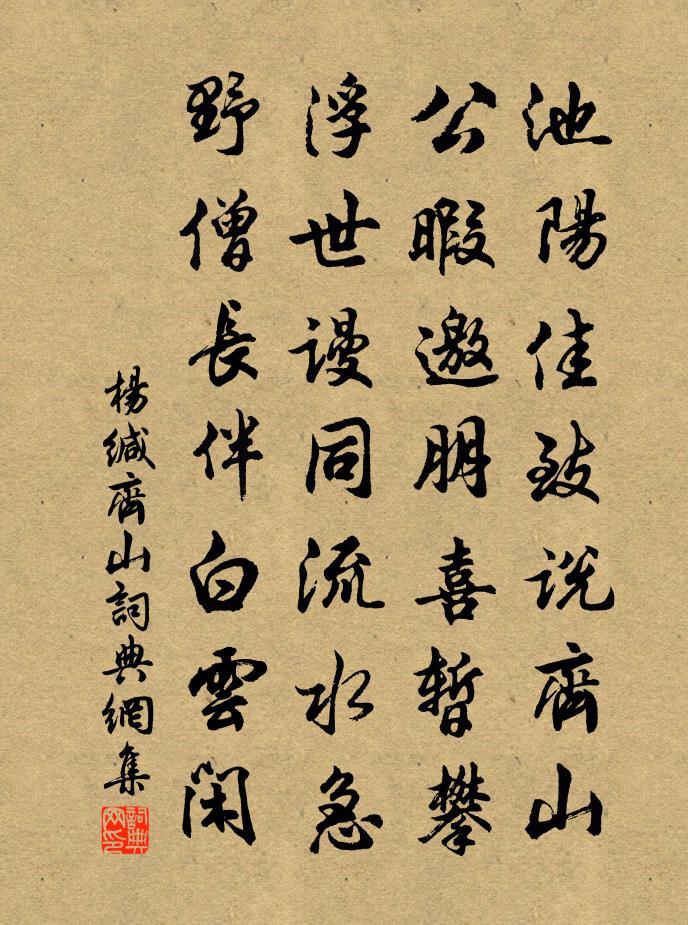 池陽佳致説齊山
公暇邀朋喜暫攀
浮世謾同流水急
野僧長伴白雲閑
楊緘齊山詞典網集
詞典網印